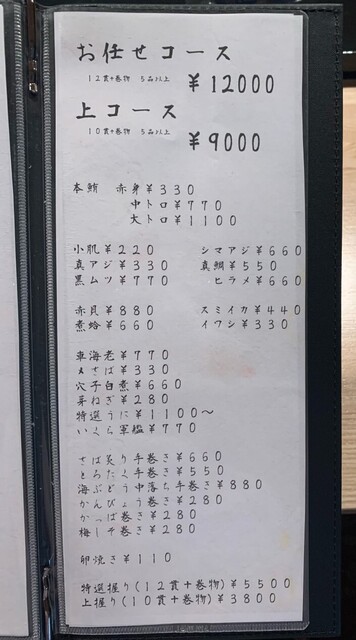 お任せコース
12貫+巻物 5品以上 ¥12000
上コース
10貫+巻物 5品以上 ¥9000
本鮪 赤身¥330
中トロ¥770
大トロ¥1100
小肌¥220 シマアジ¥660
真アジ¥330 真鯛¥550
黒ムツ¥770 ヒラメ¥660
赤貝¥880 スミイカ¥440
煮蛤¥660 イワシ¥330
車海老¥770
〆さば¥330
穴子白煮¥660
芽ねぎ¥280
特選うに¥1100～
いくら軍艦¥770
さば炙り手巻き¥660
とろたく手巻き¥550
海ぶどう中落ち手巻き¥880
かんぴょう巻き¥280
かっぱ巻き¥280
梅しそ巻き¥280
卵焼き¥110
特選握り(12貫+巻物)¥5500
上握り(10貫+巻物)¥3800